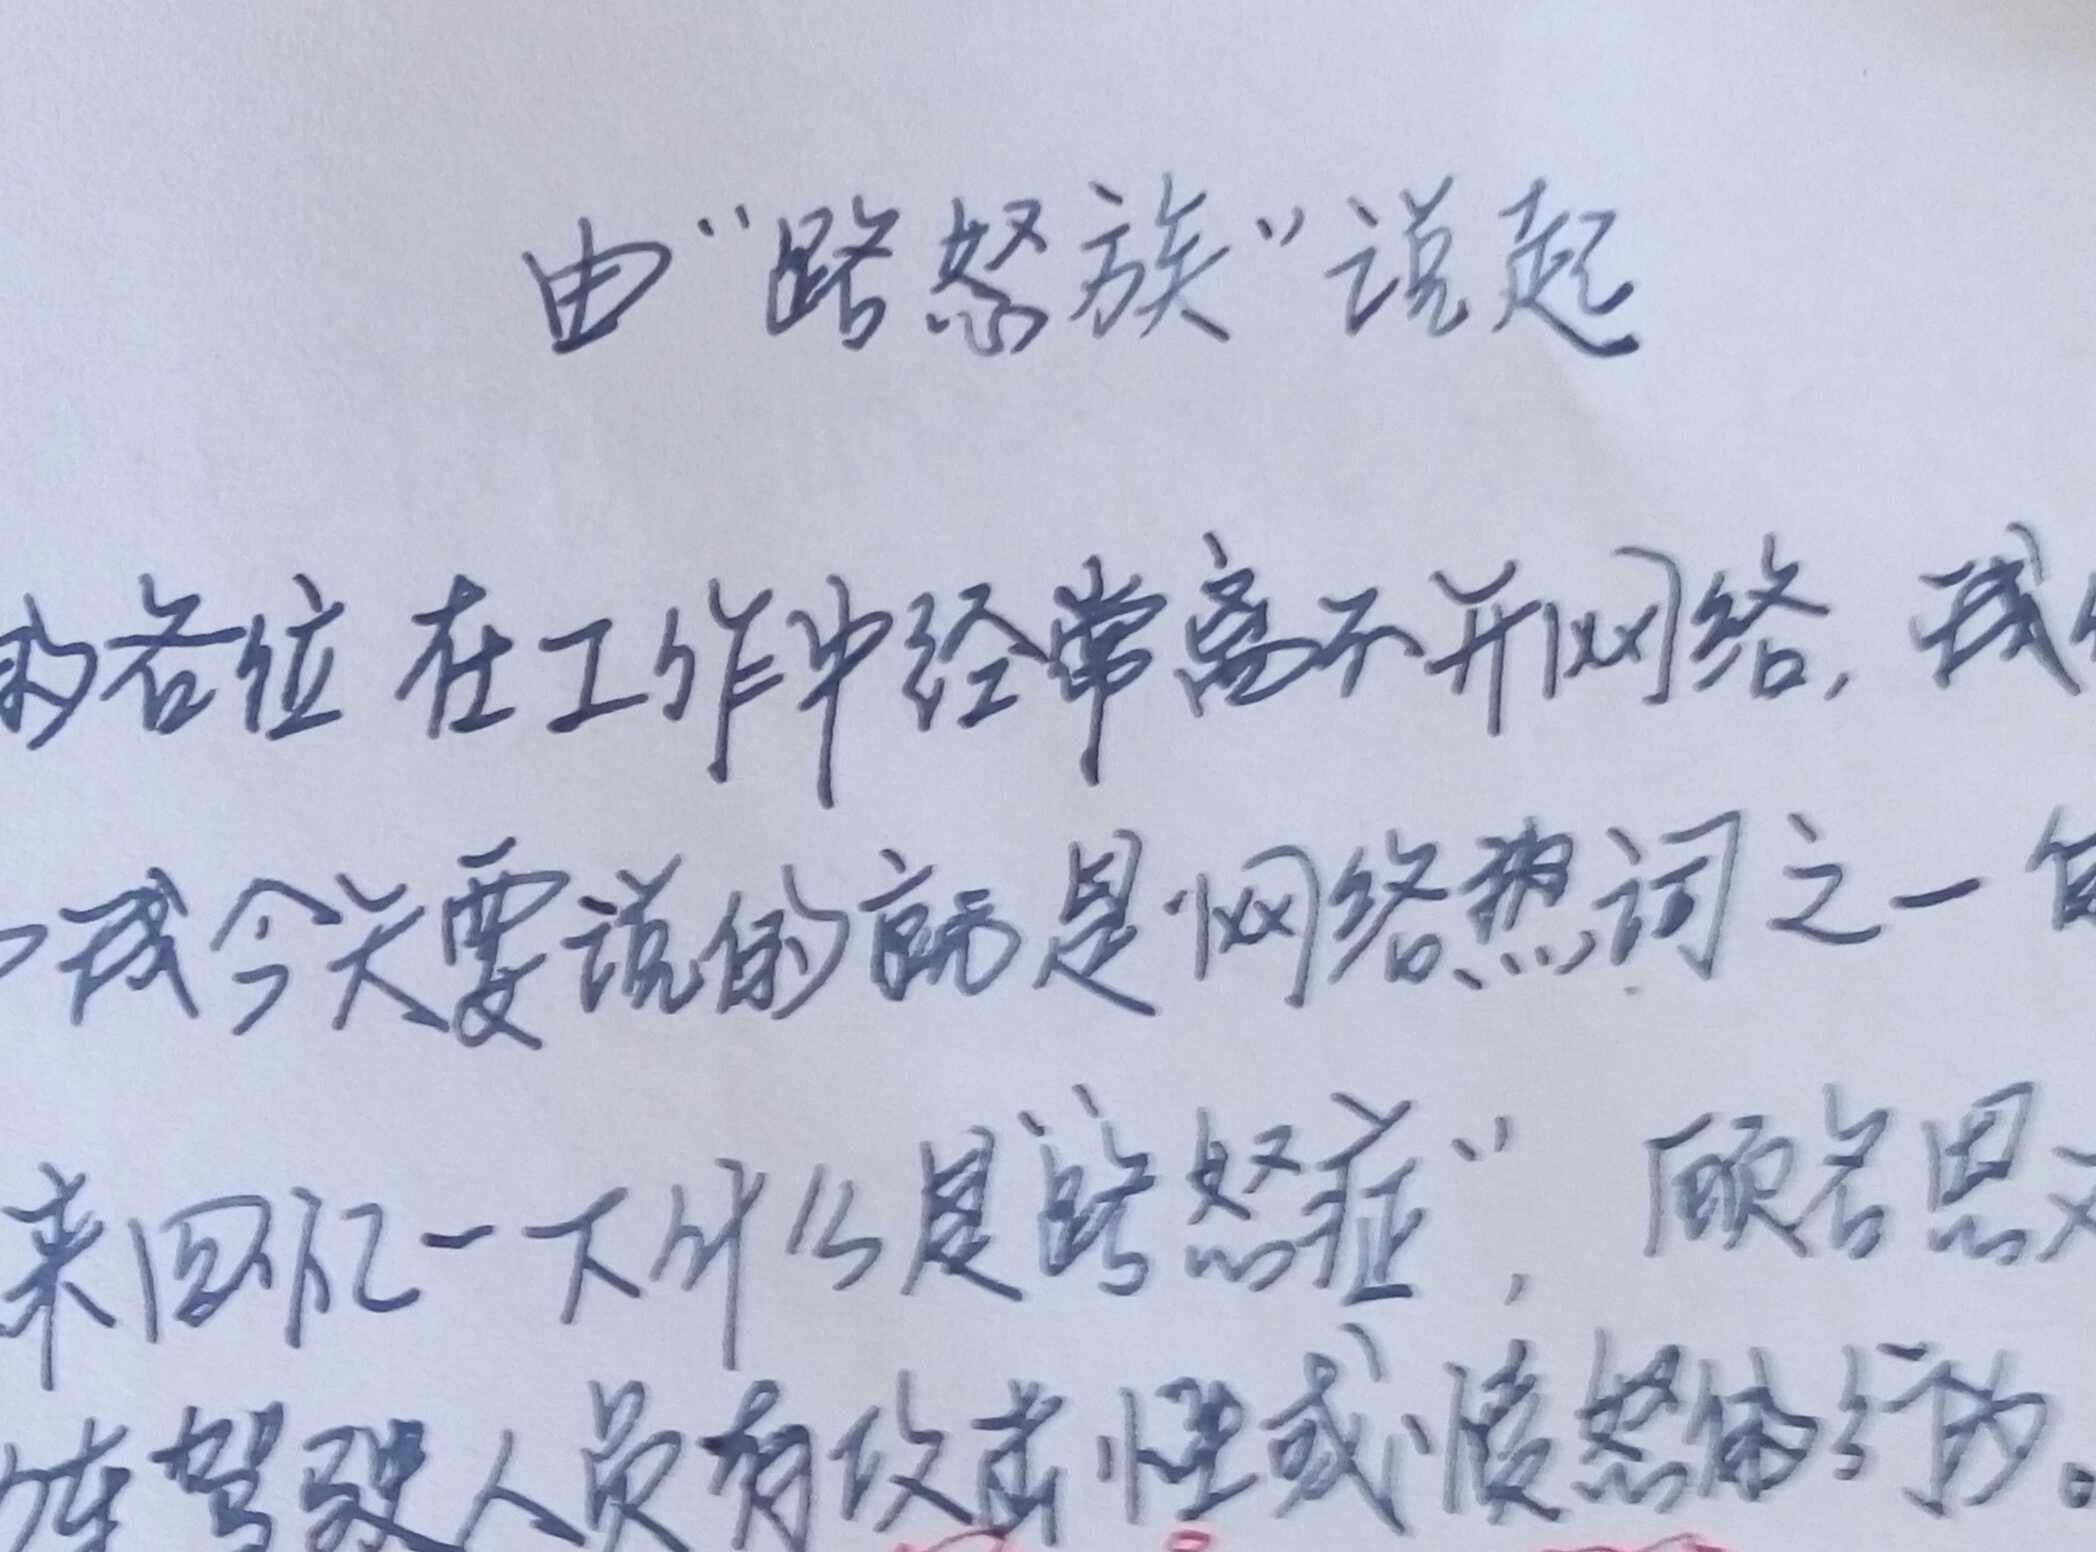 由“路怒族”说起
的各位 在工作中经常离不开网络，我
我今天要说的就是网络热词之一
来回忆一下什么是“路怒症”，顾名思
驾驶人员有攻击性或愤怒的行为。